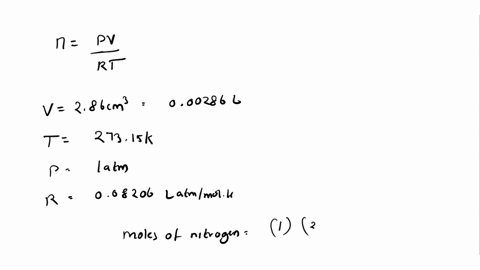 n = PV / RT
V = 2.86cm³ = 0.00286 L
T = 273.15k
P = 1atm
R = 0.08206 Latm/mol.k
moles of nitrogen = (1) (2